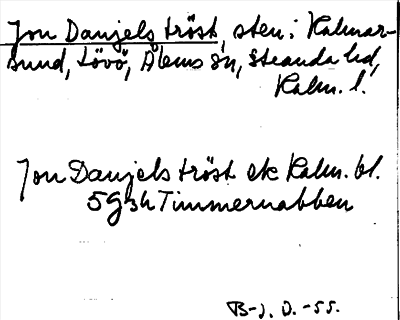 Jon Danjels tröst, sten i Kalmar-
sund, Lövö, Ålems sn, Stranda hd,
Kalm. l.
Jon Danjels tröst ek Kalm. bl.
5G3h Timmernabben
B-J. D. -55.